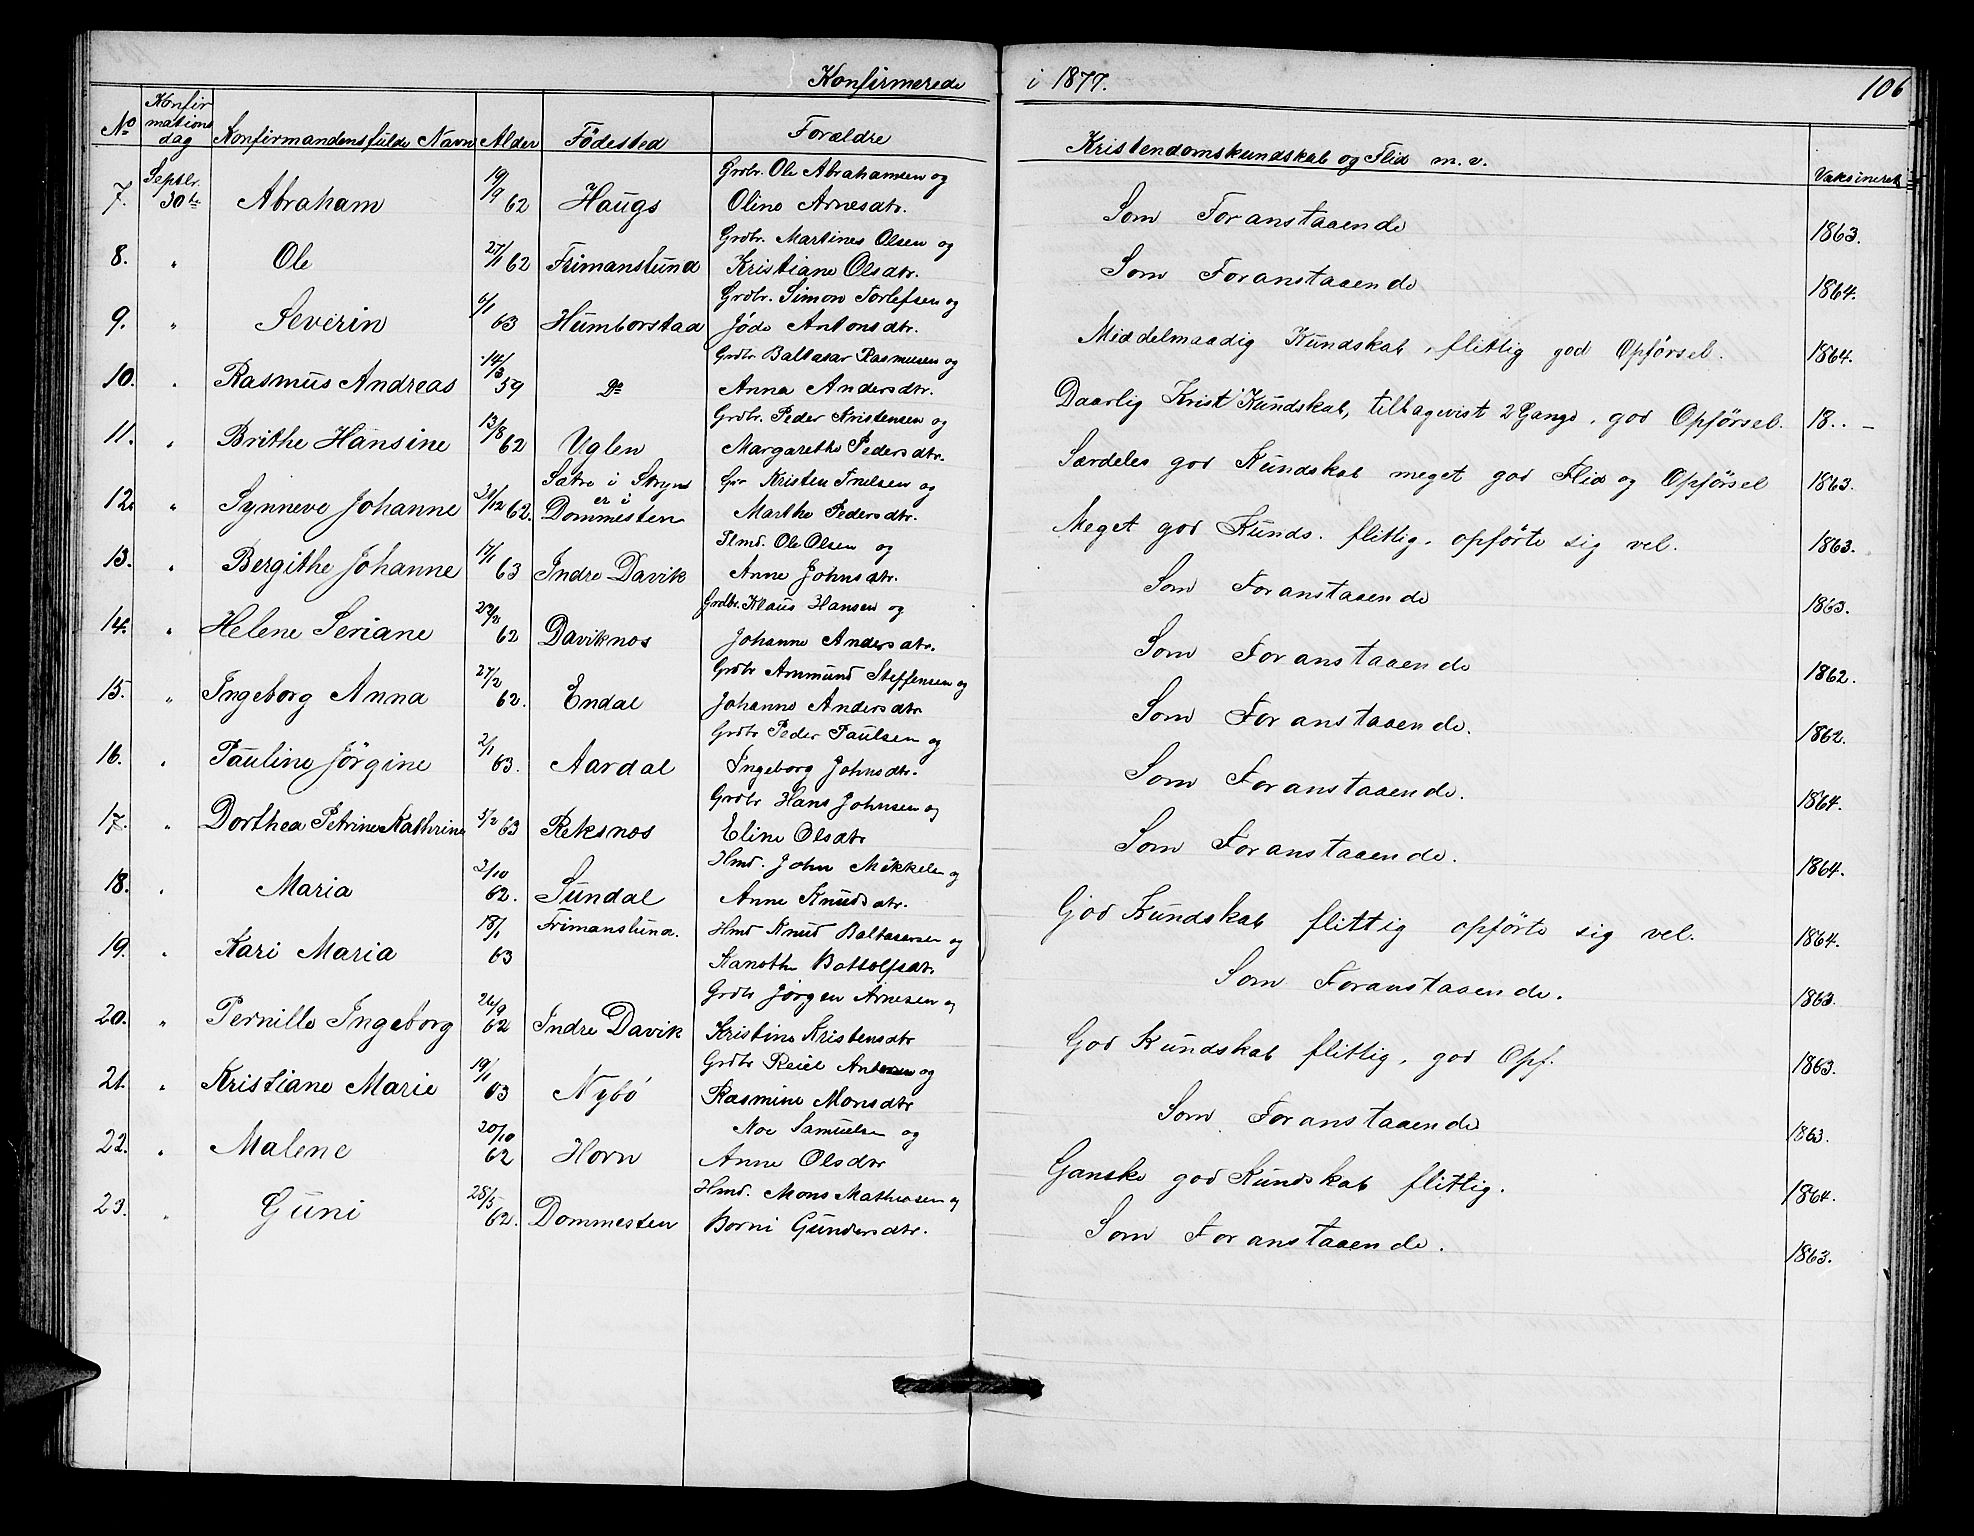 Konfirmerede i 1877. 106
No Konfirmations dag Konfirmandens fulde Navn Alder Födested Forældre Kristendomskundskab og Flid m. v. Vaksineret
Septbr. 19/9 Grdbr. Ole Abrahamsen og
7. 30te Abraham 62 Haugs Oline Arnesdtr. Som Foranstaaende 1863.
Grdbr. Martines Olsen og
8. " Ole 27/11 62 Frimanslund Kristiane Olsdtr. Som Foranstaaende 1864.
6/1 Grdbr. Simon Torlefsen og
9. " Severin 63 Humborstad Jøde Antonsdtr. Middelmaadig Kundskab, flittig god Opførsel. 1864.
14/3 Grdbr Baltasar Rasmusen og
10. " Rasmus Andreas 59 Do Anna Andersdtr. Daarlig Krist Kundskab, tilbagevist 2 Gange, god Opførsel. 18.. –
13/8 Grdbr. Peder Kristensen og
11. " Brithe Hansine 62 Uglen Margarethe Pedersdtr. Særdeles god Kundskab meget god Flid og Opførsel 1863.
Sætre i Stryn Kristen og
12. " Synneve Johanne 31/12 62. er i Dommesten Marthe Pedersdtr. Meget god Kunds. flittig, opførte sig vel. 1863.
17/1 Ole Olsen og
13. " Bergithe Johanne 63 Indre Davik Anne Johnsdtr. Som Foranstaaende 1863.
Grdbr. Klaus Hansen og
14. " Helene Seriane 62 Daviknes Johanne Andersdtr. Som Foranstaaende 1862.
27/2 Grdbr Ammund Steffensen og
15. " Ingeborg Anna 62. Endal Johanne Andersdtr Som Foranstaaende. 1862.
2/1 Grdbr Peder Paulsen og
16. " Pauline Jörgine 63. Aardal Ingeborg Johnsdtr. Som Foranstaaende. 1864.
Grdbr Hans Johnsen og
17. " Dorthea Petrine Kathrine 5/2 63 Reksnes Eline Olsdtr Som Foranstaaende. 1864.
2/10 Hmd. John Mikkels og
18. " Maria 62. Sundal Anne Knudsdtr. God Kundskab flittig opførte sig vel. 1864.
18/1 Frimanslund. Hmd Knud Baltasarsen og
19. " Kari Maria 63 Bottolfsdtr Som Foranstaaende. 1863.
26/9 Grdbr Jörgen Arnesen og
20. " Pernille Ingeborg 62 Indre Davik Kristine Kristensdtr God Kundskab flittig, god Opf. 1863.
19/1 Grdbr Reiel og
21. " Kristiane Marie 63 Nybö Rasmine Monsdtr Som Foranstaaende 1863.
20/10 Noe Samuelsen og
22. " Malene 62 Horn Anne Olsdtr Ganske god Kundskab flittig. 1864.
28/5 Hmd. Mons Mathiasen og
23. " Guni 62. Dommesten Borni Gundersdtr. Som Foranstaaende. 1863.